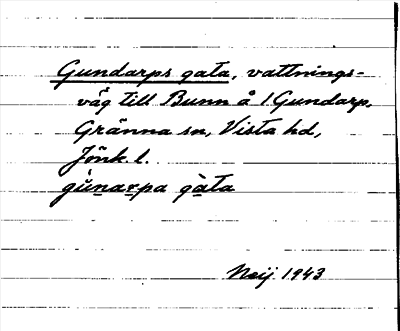 Gundarps gata, vattnings-
väg till Bunn å / Gundarp,
Gränna sn, Vista hd,
Jönk. l.
gùnarpa gàta
Neij 1943